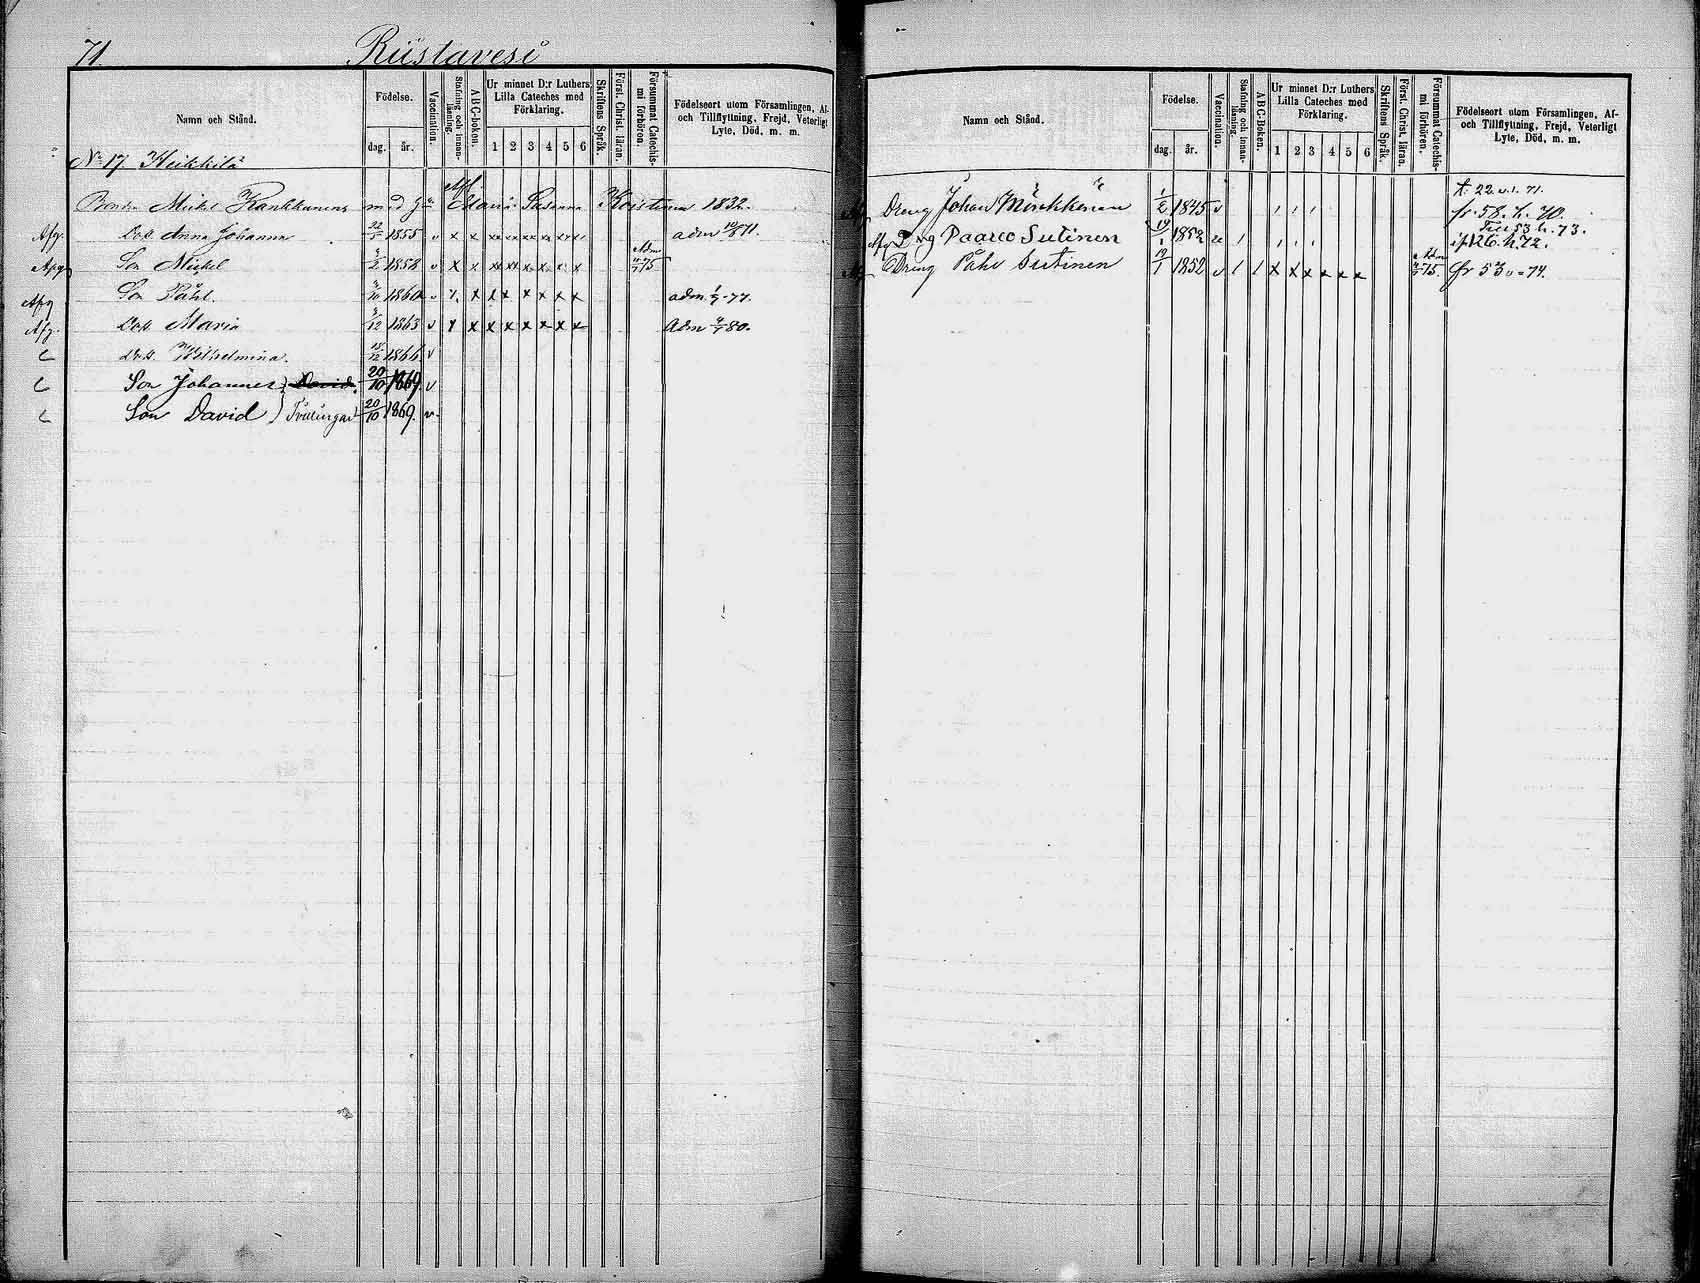 71.
Riistavesi
Namn och Stånd.
Födelse.
dag. år.
Vaccination.
Stafning och innan-läsning.
ABC-boken.
Ur minnet D:r Luthers Lilla Cateches med Förklaring.
1 2 3 4 5 6
Skriftens Språk.
Först. Christ. läran.
Försummat Catechis-mi förhören.
Födelseort utom Församlingen, Af- och Tillflyttning, Frejd, Veterligt Lyte, Död, m. m.
No 17 Heikkilä
Michel Kankkunens m. d. Maria Susanna Koistinen 1832.
Afg. Dott. Anna Johanna 1855 v x x x x x x x x adm
Afg Son Michel 1858 v x x x x x x x x Adm 75
Afg Son Påhl 1860 v x x x x x x x adm. 77
Afg. Dott. Maria 12 1863 v x x x x x x x Adm 80.
dott. Wilhelmina. 1866 v
Son Johannes David. 20/10 1869 v
Son David Tvillingar 20/10 1869. v
Namn och Stånd.
Födelse.
dag. år.
Vaccination.
Stafning och innan-läsning.
ABC-boken.
Ur minnet D:r Luthers Lilla Cateches med Förklaring.
1 2 3 4 5 6
Skriftens Språk.
Först. Christ. läran.
Försummat Catechis-mi förhören.
Födelseort utom Församlingen, Af- och Tillflyttning, Frejd, Veterligt Lyte, Död, m. m.
Dreng Johan 1/2 1845 v fr. 58. h. 70.
53 h. 73.
Sutinen 1852 h. 72.
Dreng Påhl Sutinen 1852 v x x x x x x Adm 75. fr 53 74.